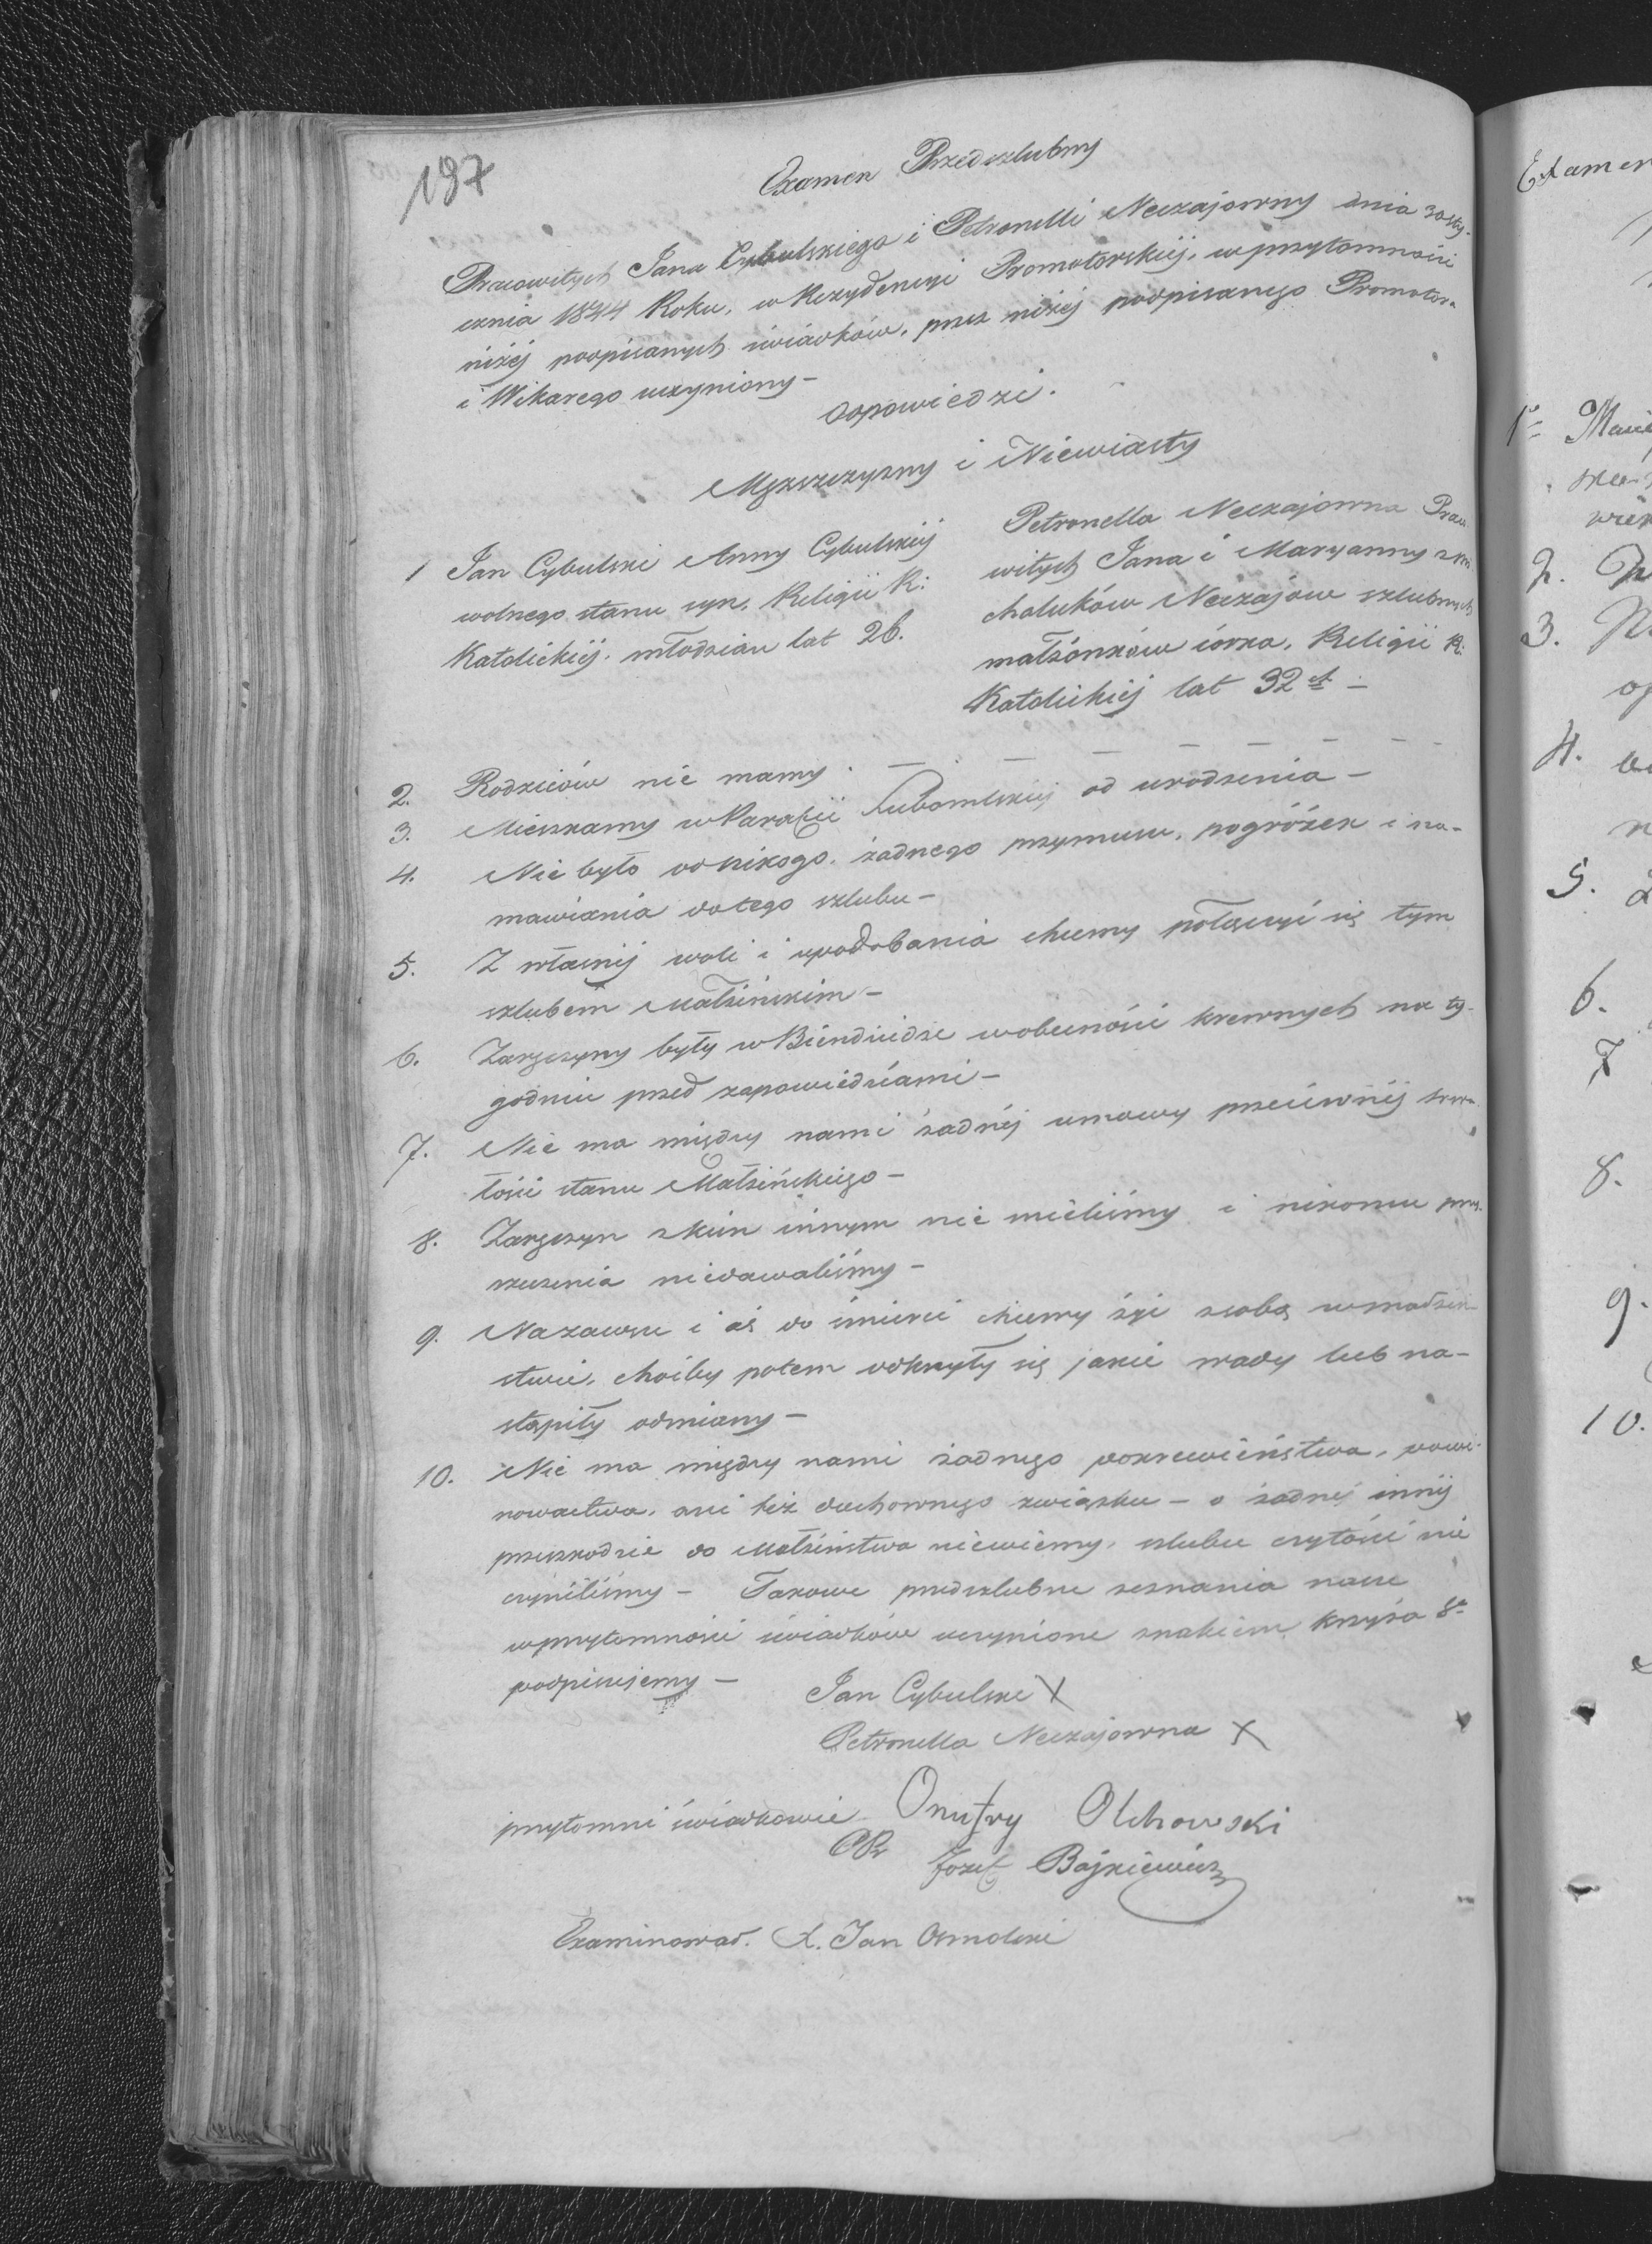 197
Examen Przedszlubny
Pracowitych Jana Cybulskiego i Petronelli Neczajowny dnia 30 sty-
cznia 1844 Roku, w Rezydencyi Promotorskiej, w przytomności
niżej podpisanych świadków, przez niżej podpisanego Promotora
i Wikarego uczyniony –
Odpowiedzi.
Mężczyzny i Niewiasty
1 Jan Cybulski Anny Cybulskiej
wolnego stanu syn, Religii R:
Katolickiej, młodzian lat 26.
Petronella Neczajowna Praco
witych Jana i Maryanny
chaluków Neczajów szlubnych
małżonków córka, Religii R.
Katolickiej lat 32 –
2. Rodziców nie mamy. – – – – – –
3. Mieszkamy w Parafii Lubomlskiej od urodzenia –
4. Nie było od nikogo, żadnego przymusu, pogróżek i na-
mawiania do tego szlubu –
5. Z własnej woli i upodobania chcemy połączyć się tym
szlubem Małżeńskim –
6. Zaręczyny były w Biendiudze w obecności krewnych na ty-
godniu przed zapowiedziami –
7. Nie ma między nami żadnej umowy przeciwnej trwa
łości stanu Małżeńskiego –
8. Zaręczyn z kim innym nie mieliśmy i nikomu przy-
rzeczenia niedawaliśmy –
9. Nazawsze i aż do śmierci chcemy żyć z sobą w małżeń-
stwie, choćby potem odkryły się jakie wady lub na-
stąpiły odmiany –
10. Nie ma między nami żadnego pokrewieństwa, powi-
nowactwa, ani też duchownego związku – o żadnej innej
przeszkodzie do Małżeństwa niewiemy, szlubu czystości nie
czyniliśmy – Takowe przedszlubne zeznania nasze
w przytomności świadków uczynione znakiem krzyża S.
podpisujemy –
Jan Cybulski X
Petronella Neczajowna X
przytomni świadkowie Onufry Olchowski
Jozef Bajkiewicz
Examinował. X. Jan Osmolski
Examen
1
2.
3.
4.
5.
6.
7
8.
9.
10.